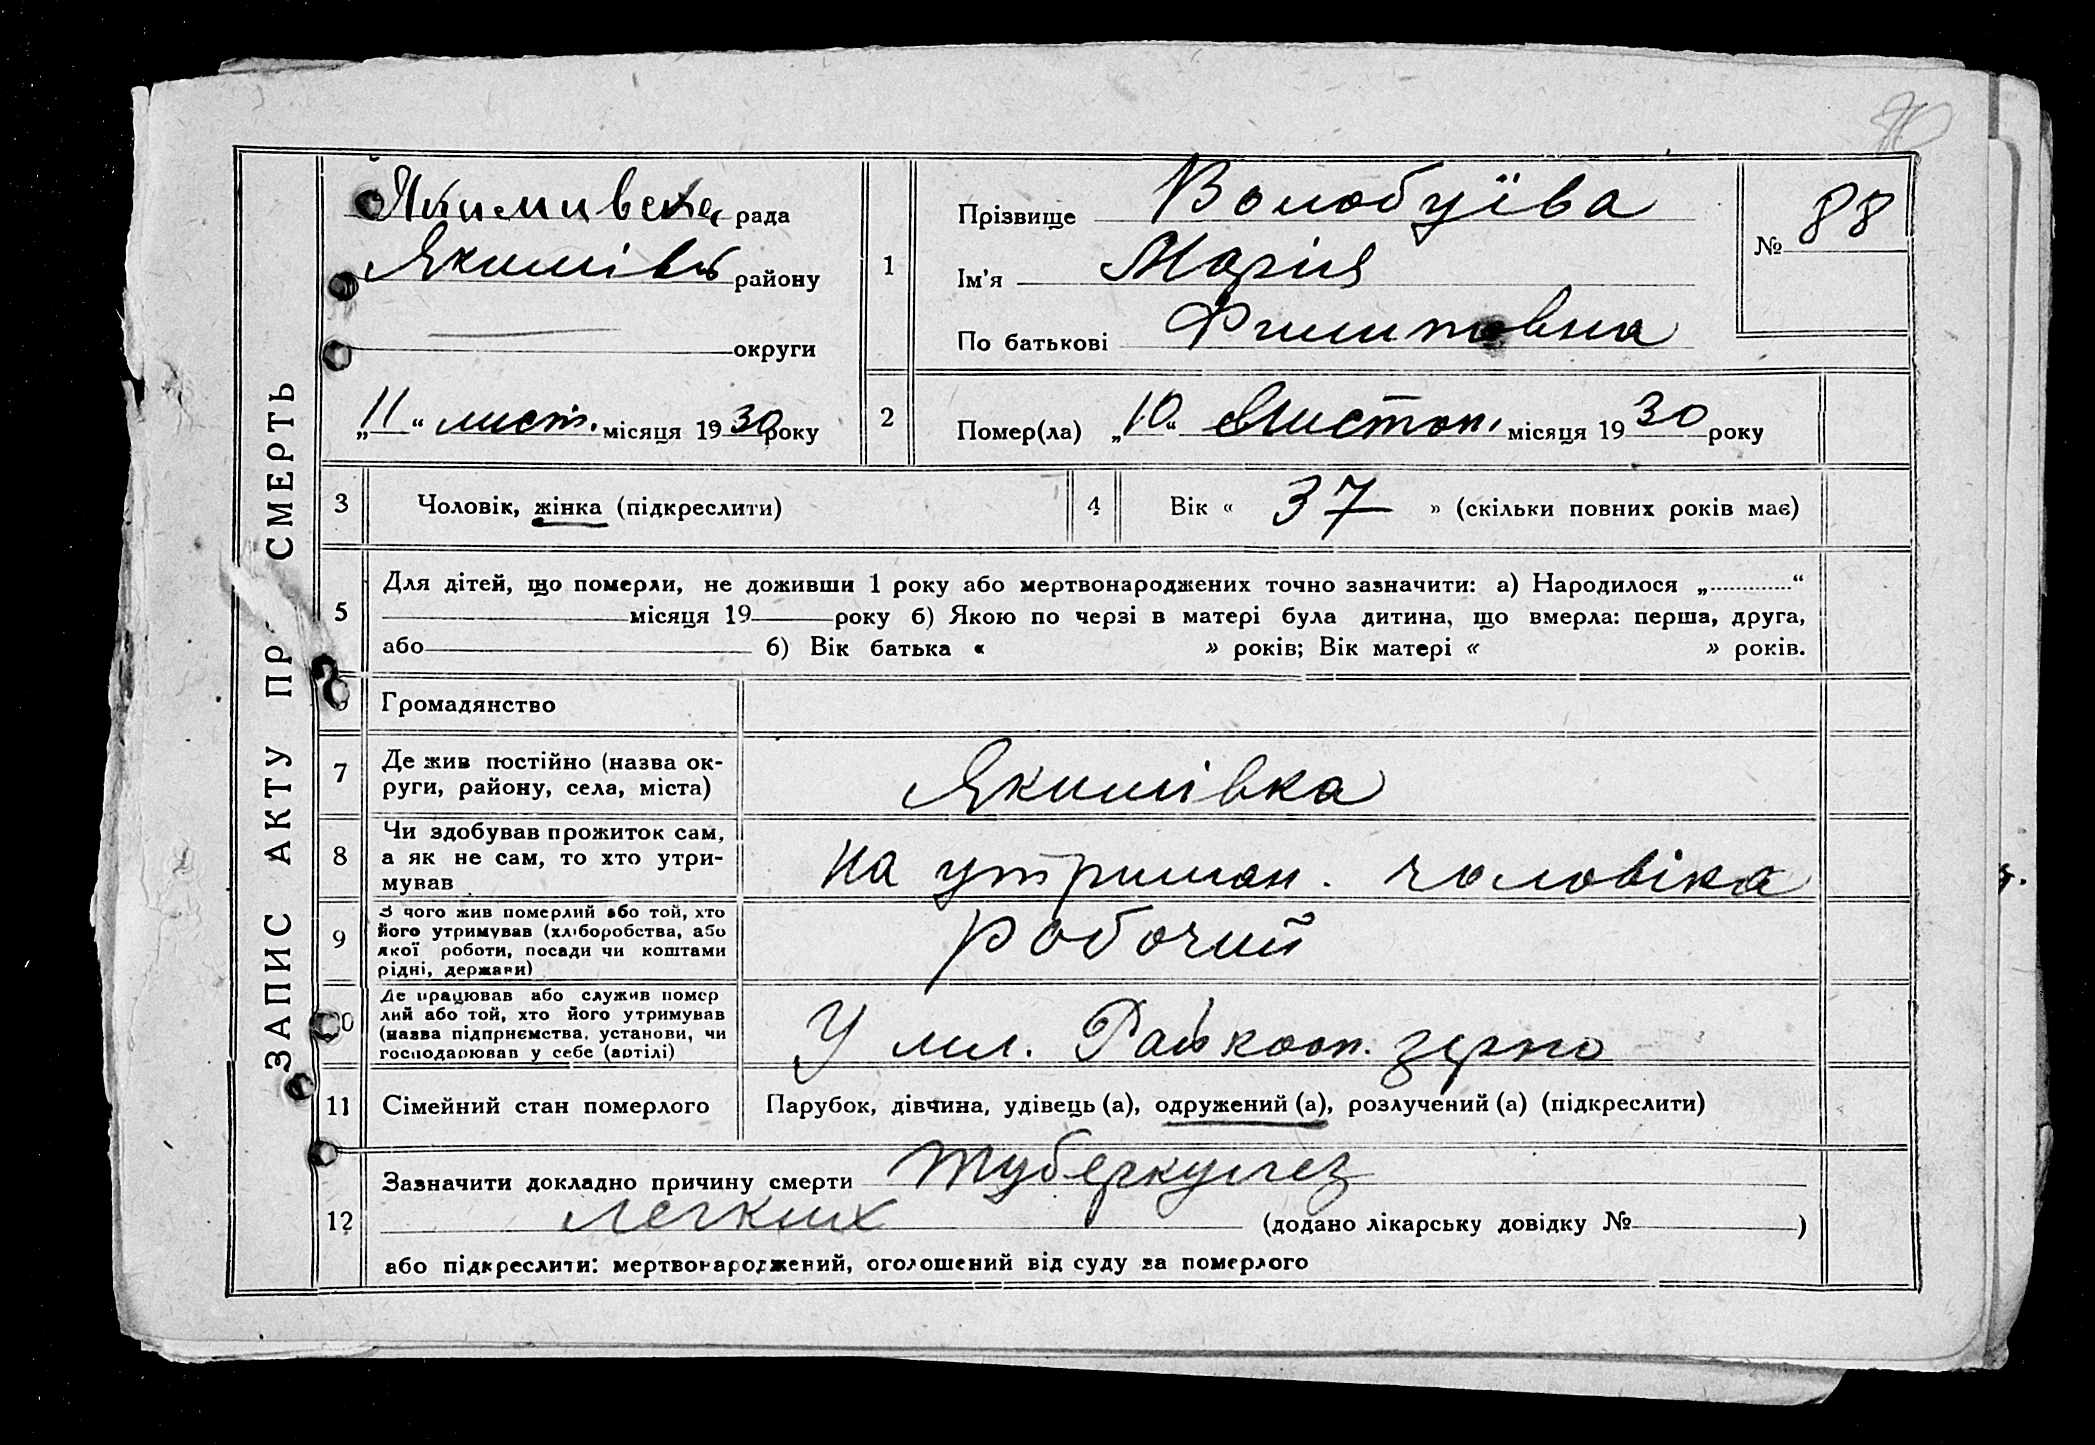 ЗАПИС АКТУ ПР СМЕРТЬ
Якимивска рада
Якимівс району
округи
„11“ лист. місяця 1930 року
1
Прізвище Волобуїва
Ім'я Марія
По батькові Филиповна
№ 88
2
Помер(ла) „10“ Листоп. місяця 1930 року
3
Чоловік, жінка (підкреслити)
4
Вік « 37 » (скільки повних років має)
5
Для дітей, що померли, не доживши 1 року або мертвонароджених точно зазначити: а) Народилося „ “
місяця 19 року б) Якою по черзі в матері була дитина, що вмерла: перша, друга,
або б) Вік батька « » років; Вік матері « » років.
Громадянство
7
Де жив постійно (назва ок-
руги, району, села, міста)
Якимівка
8
Чи здобував прожиток сам,
а як не сам, то хто утри-
мував
на утриман. чоловіка
9
З чого жив померлий або той, хто
його утримував (хліборобства, або
якої роботи, посади чи коштами
рідні, держави)
робочий
10
Де працював або служив помер
лий або той, хто його утримував
(назва підприємства, установи, чи
господарював у себе (артілі)
У мл. Райкооп. зерно
11
Сімейний стан померлого
Парубок, дівчина, удівець (а), одружений (а), розлучений (а) (підкреслити)
12
Зазначити докладно причину смерти Туберкульез
легких (додано лікарську довідку № )
або підкреслити: мертвонароджений, оголошений від суду за померлого